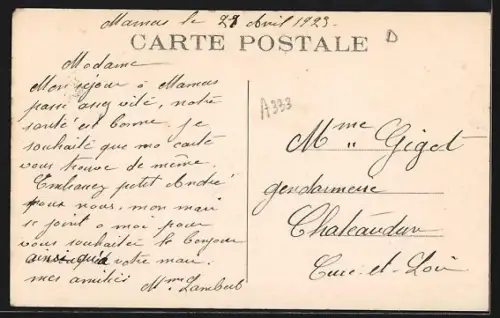 Mamers le 27 Avril 1923
CARTE POSTALE
D
Madame
Mon séjour à Mamers
passe assez vite, notre
santé est bonne je
souhaite que ma carte
vous trouve de même.
Embrassez petit André
pour nous, mon mari
se joint à moi pour
vous souhaiter le bonjour
ainsi qu'à votre mari
mes amitiés Mme Lambert
A333
Mme Giget
gendarmerie
Chateaudun
Eure-et-Loir